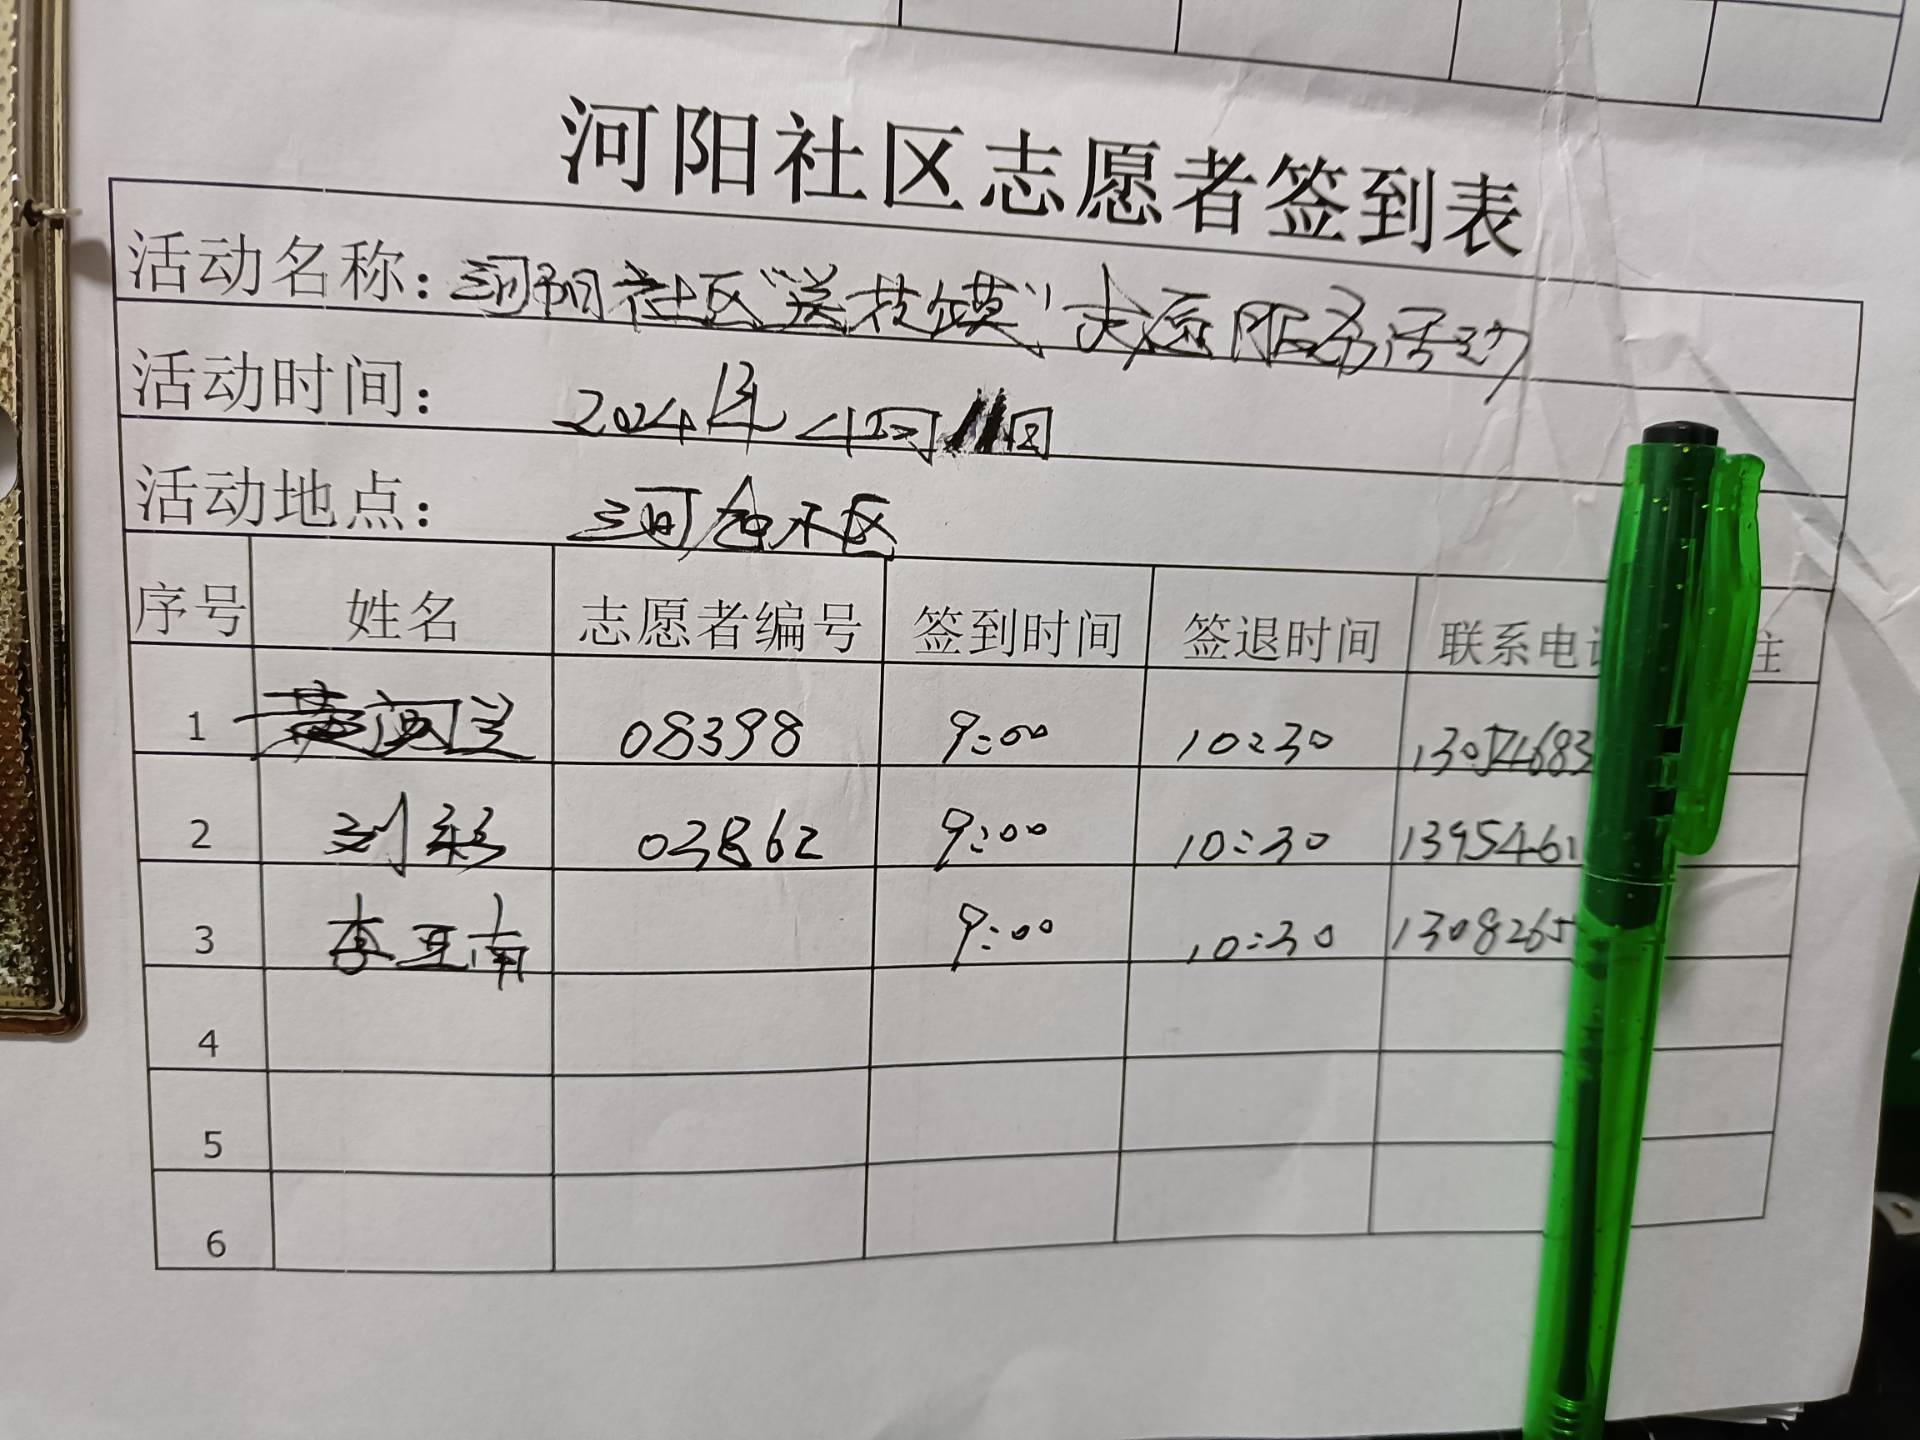 河阳社区志愿者签到表
活动名称：河阳社区"送枝馍"志愿服务活动
活动时间：2024年4月11日
活动地点：河仓小区
序号 姓名 志愿者编号 签到时间 签退时间 联系电 注
1 08398 9:00 10:30 13054683
2 刘彩 03862 9:00 10:30 1395461
3 李亚南 9:00 10:30 1308265
4
5
6